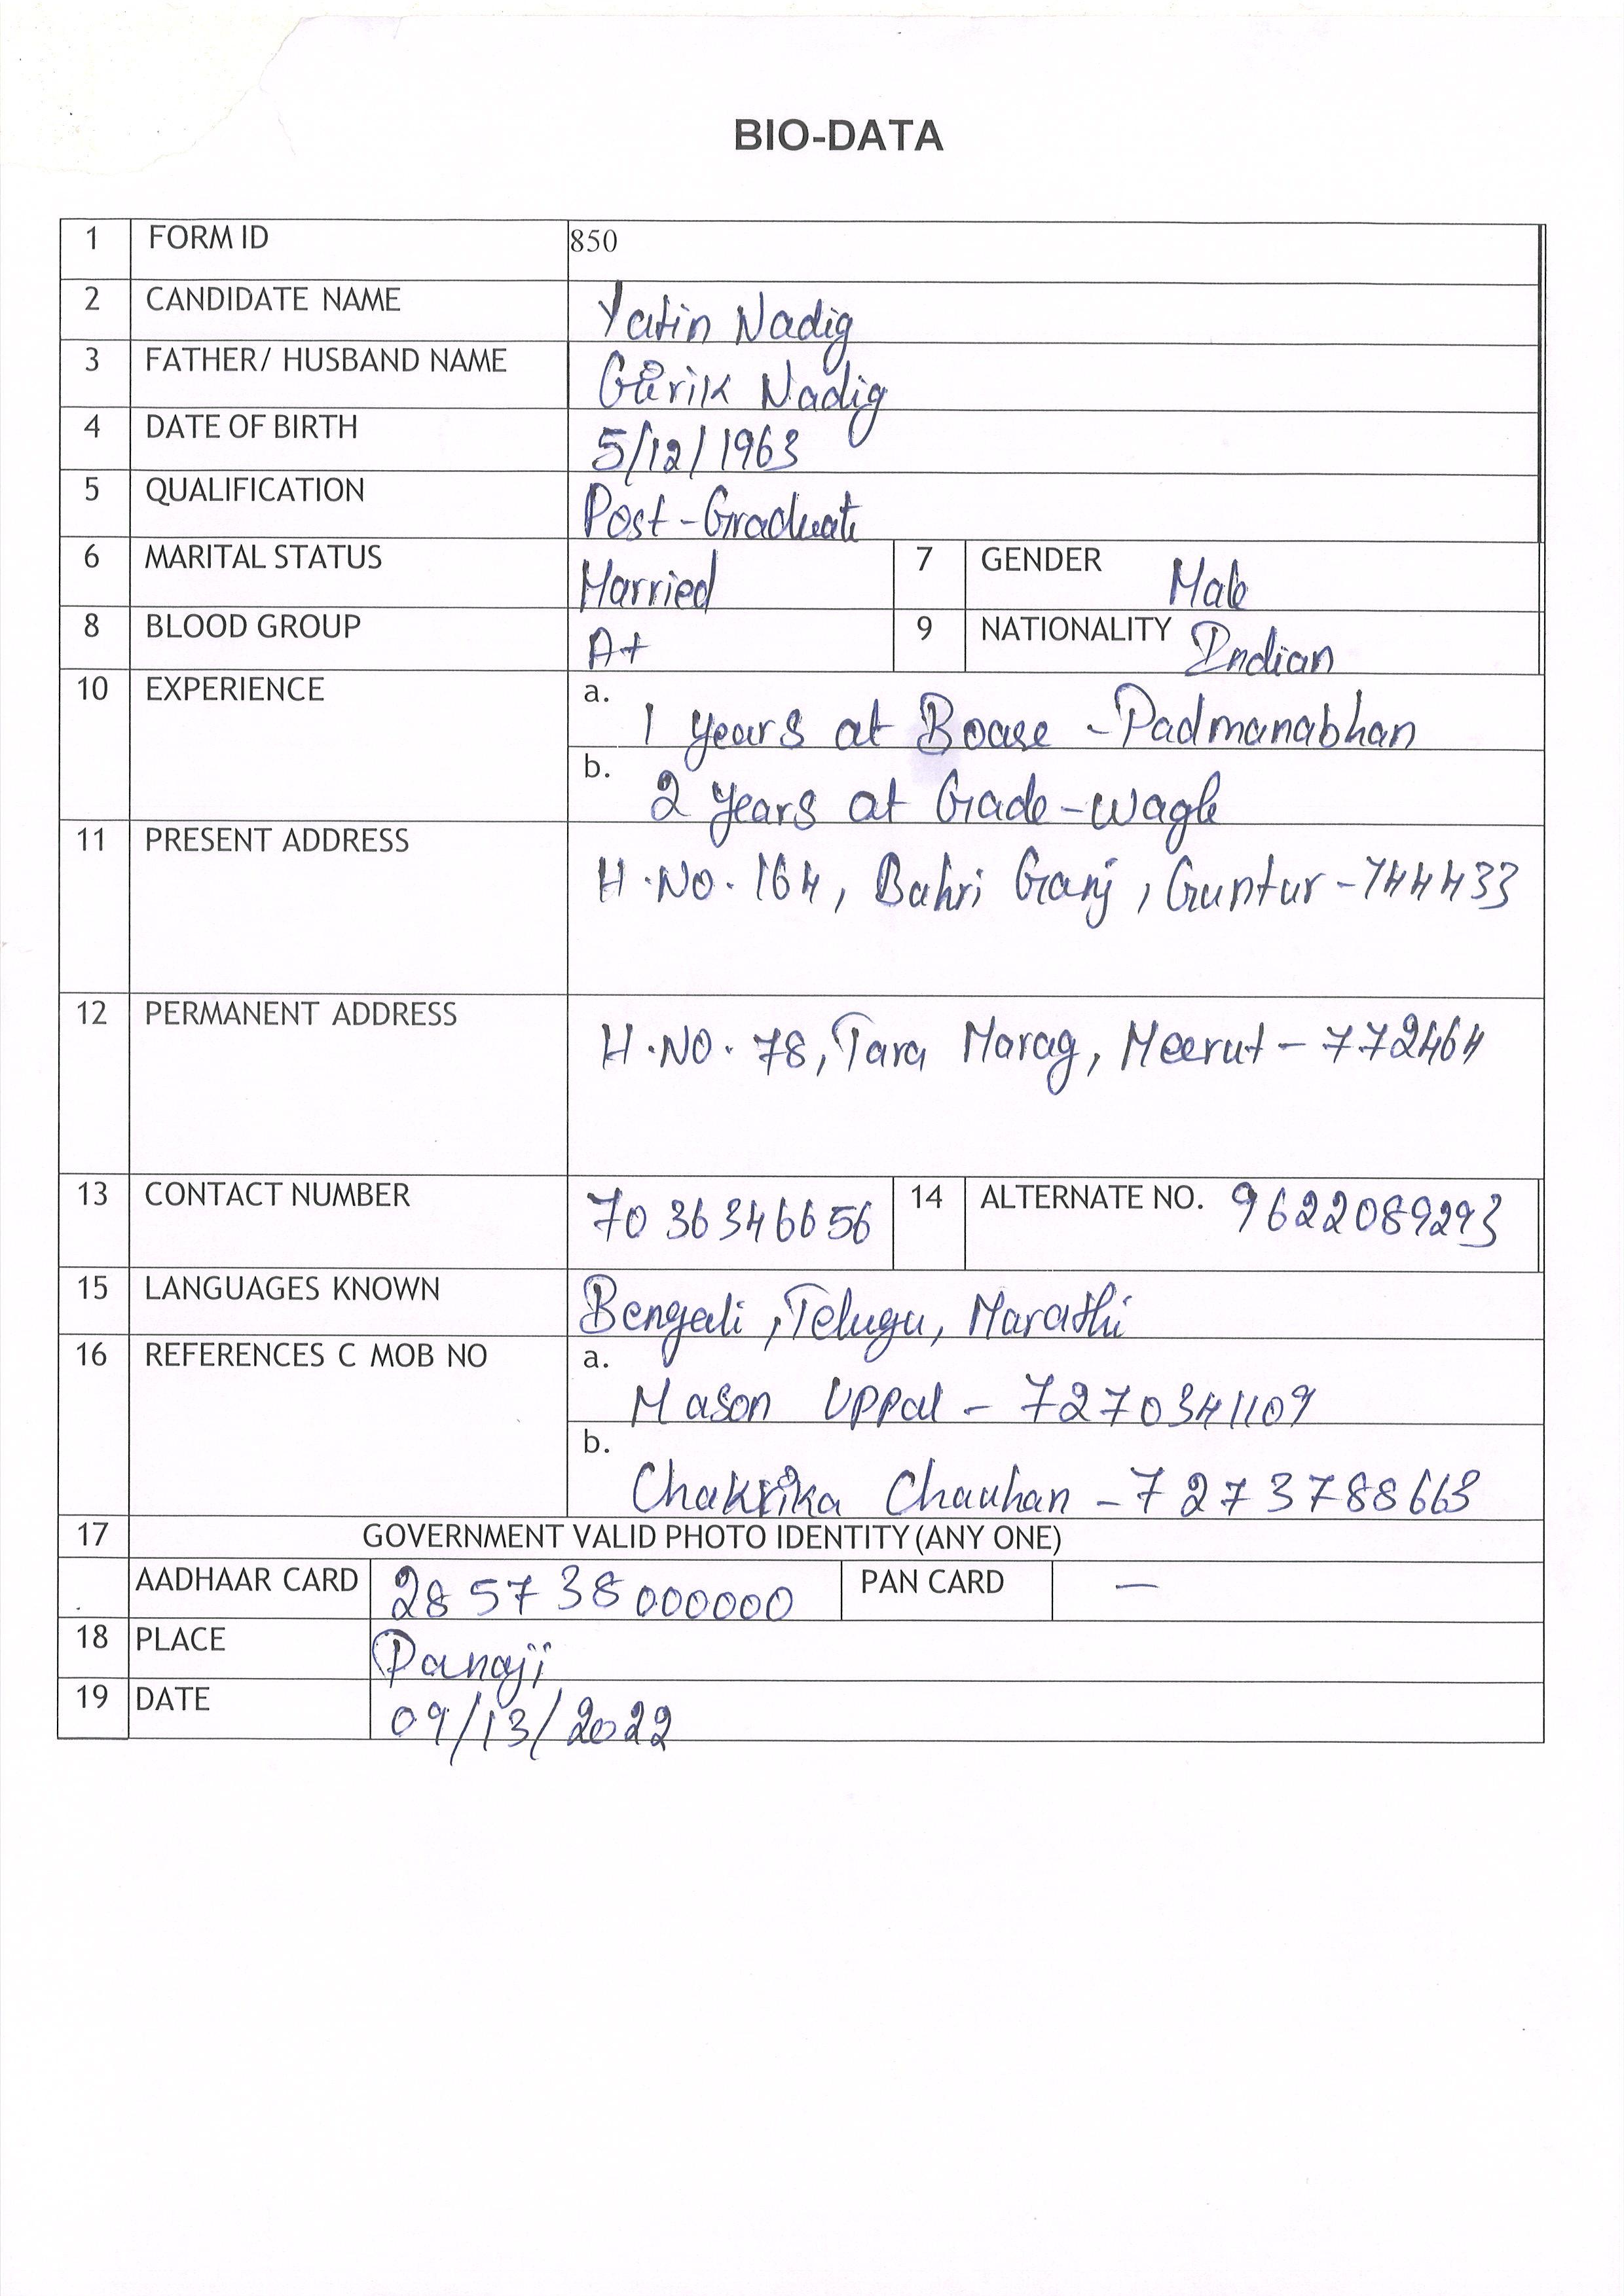 BIO-DATA
1 FORM ID 850
2 CANDIDATE NAME Yatin Nadig
3 FATHER/ HUSBAND NAME Gärik Nadig
4 DATE OF BIRTH 5/12/1963
5 QUALIFICATION Post-Graduate
6 MARITAL STATUS Married 7 GENDER Male
8 BLOOD GROUP A+ 9 NATIONALITY Indian
10 EXPERIENCE a. 1 years at Boase - Padmanabhan
b. 2 years at Gade-wagle
11 PRESENT ADDRESS H.No. 164, Bahri Ganj, Guntur - 744433
12 PERMANENT ADDRESS H.NO. 78, Tara Marag, Meerut - 772464
13 CONTACT NUMBER 7036346656 14 ALTERNATE NO. 9622089293
15 LANGUAGES KNOWN Bengali, Telugu, Marathi
16 REFERENCES C MOB NO a. Mason Uppal - 7270341109
b. Chakrika Chauhan - 7273788663
17 GOVERNMENT VALID PHOTO IDENTITY (ANY ONE)
AADHAAR CARD 285738000000 PAN CARD —
18 PLACE Panaji
19 DATE 09/13/2022